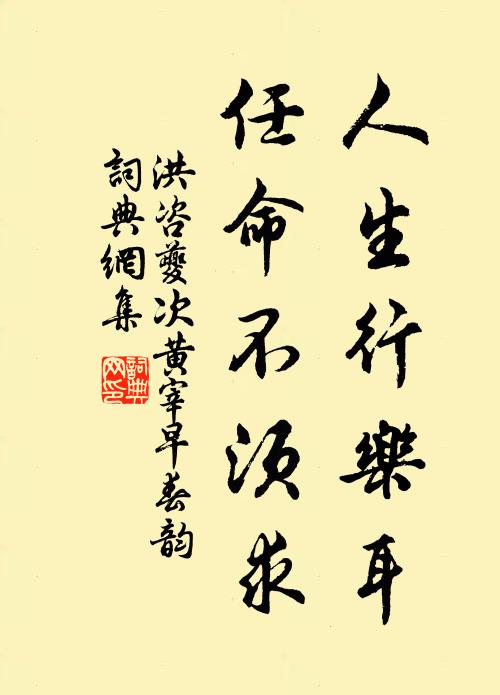 人生行樂耳
任命不須求
洪咨夔次黄宰早春韵
詞典網集
詞典网印